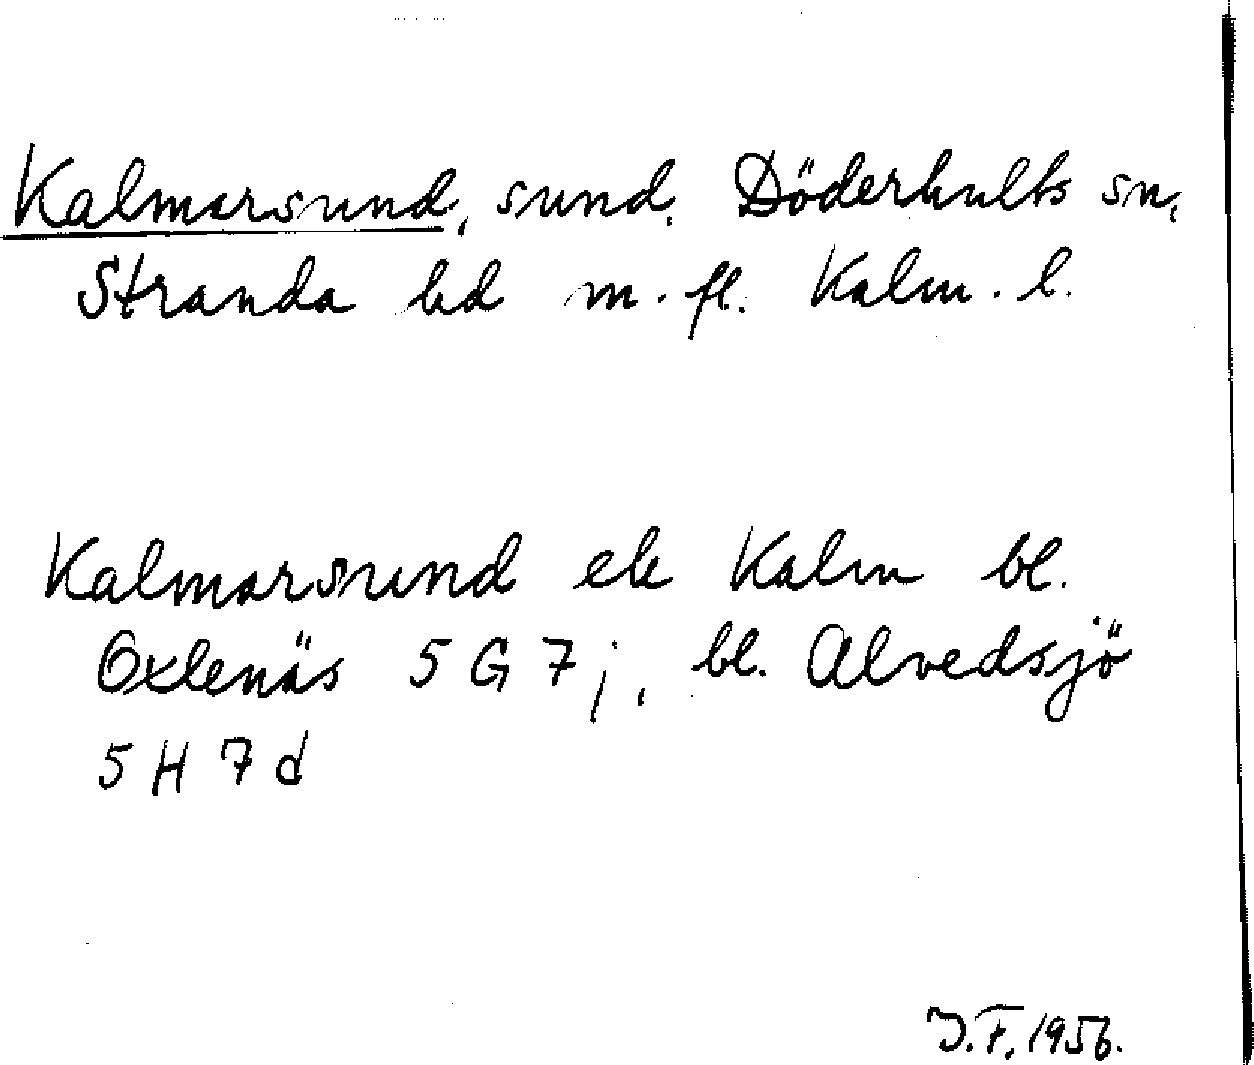 Kalmarsund, sund, Döderhults sn,
Stranda hd m. fl. Kalm. l.
Kalmarsund ek Kalm bl.
Oxlenäs 5 G 7 j, bl. Alvedsjö
5 H 7 d
J.F. 1956.